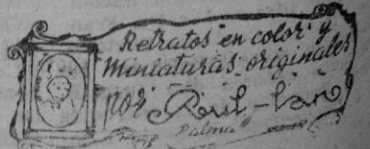 Retratos en color y
miniaturas originales
por Raúl-Van
Palma